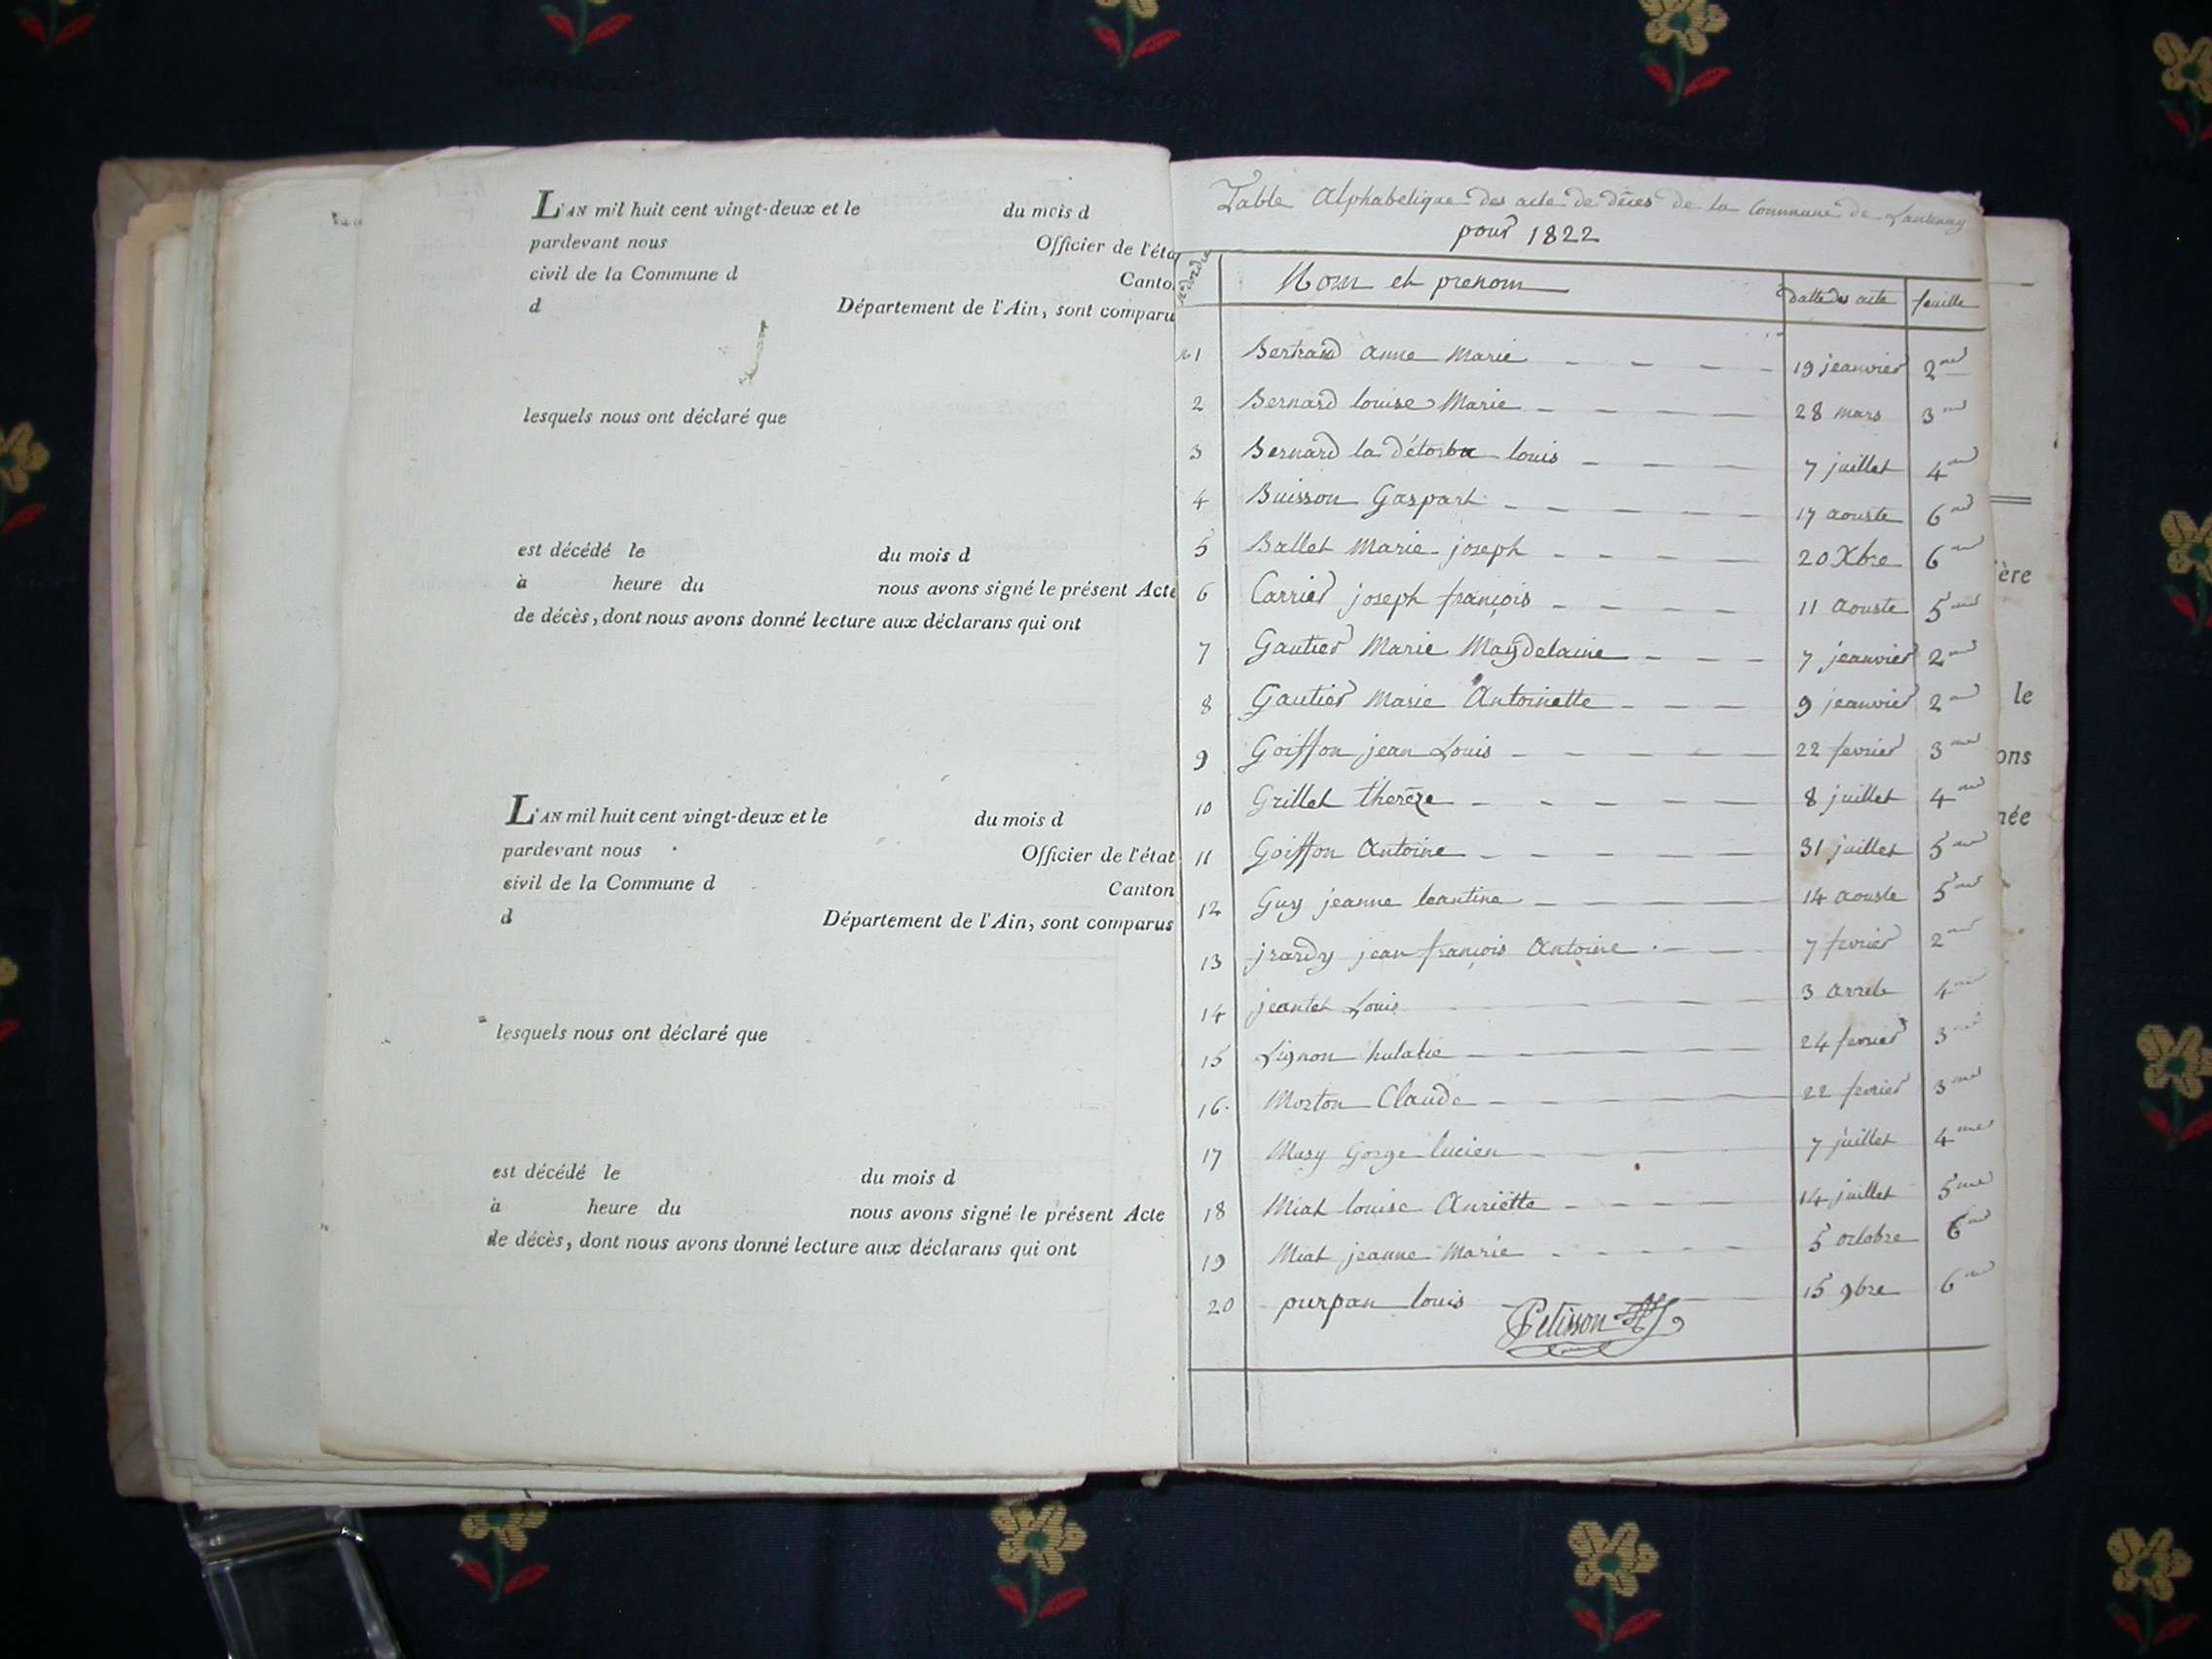 L'AN mil huit cent vingt-deux et le du mois d
pardevant nous Officier de l'éta
civil de la Commune d Canto
d Département de l'Ain, sont comparu
lesquels nous ont déclaré que
est décédé le du mois d
à heure du nous avons signé le présent Acte
de décès, dont nous avons donné lecture aux déclarans qui ont
L'AN mil huit cent vingt-deux et le du mois d
pardevant nous Officier de l'état
civil de la Commune d Canton
d Département de l'Ain, sont comparus
lesquels nous ont déclaré que
est décédé le du mois d
à heure du nous avons signé le présent Acte
de décès, dont nous avons donné lecture aux déclarans qui ont
Table Alphabetique des acte de déces de la Commune de Lantenay
pour 1822
Nom et prenom datte des acte feuille
1 Bertrand anne Marie 19 jeanvier 2me
2 Bernard louise Marie 28 mars 3me
3 Bernard la louis 7 juillet 4me
4 Buisson Gaspart 17 aouste 6me
5 Ballet Marie joseph 20 Xbre 6me
6 Carrier joseph françois 11 aouste 5me
7 Gautier Marie Magdelaine 7 jeanvier 2me
8 Gautier Marie Antoinette 9 jeanvier 2me
9 Goiffon jean Louis 22 fevrier 3me
10 Grillet thereze 8 juillet 4me
11 Goiffon Antoine 31 juillet 5me
12 Guy jeanne leantine 14 aouste 5me
13 jrardy jean françois Antoine 7 fevrier 2me
14 jeantet Louis 3 4me
15 Lignon hulalie 24 fevrier 3me
16 Morton Claude 22 fevrier 3me
17 Gorge lucien 7 juillet 4me
18 Miat louise Anriette 14 juillet 5me
19 Miat jeanne Marie 5 octobre 6me
20 purpan louis 15 9bre 6me
Petisson
ère
le
ons
née